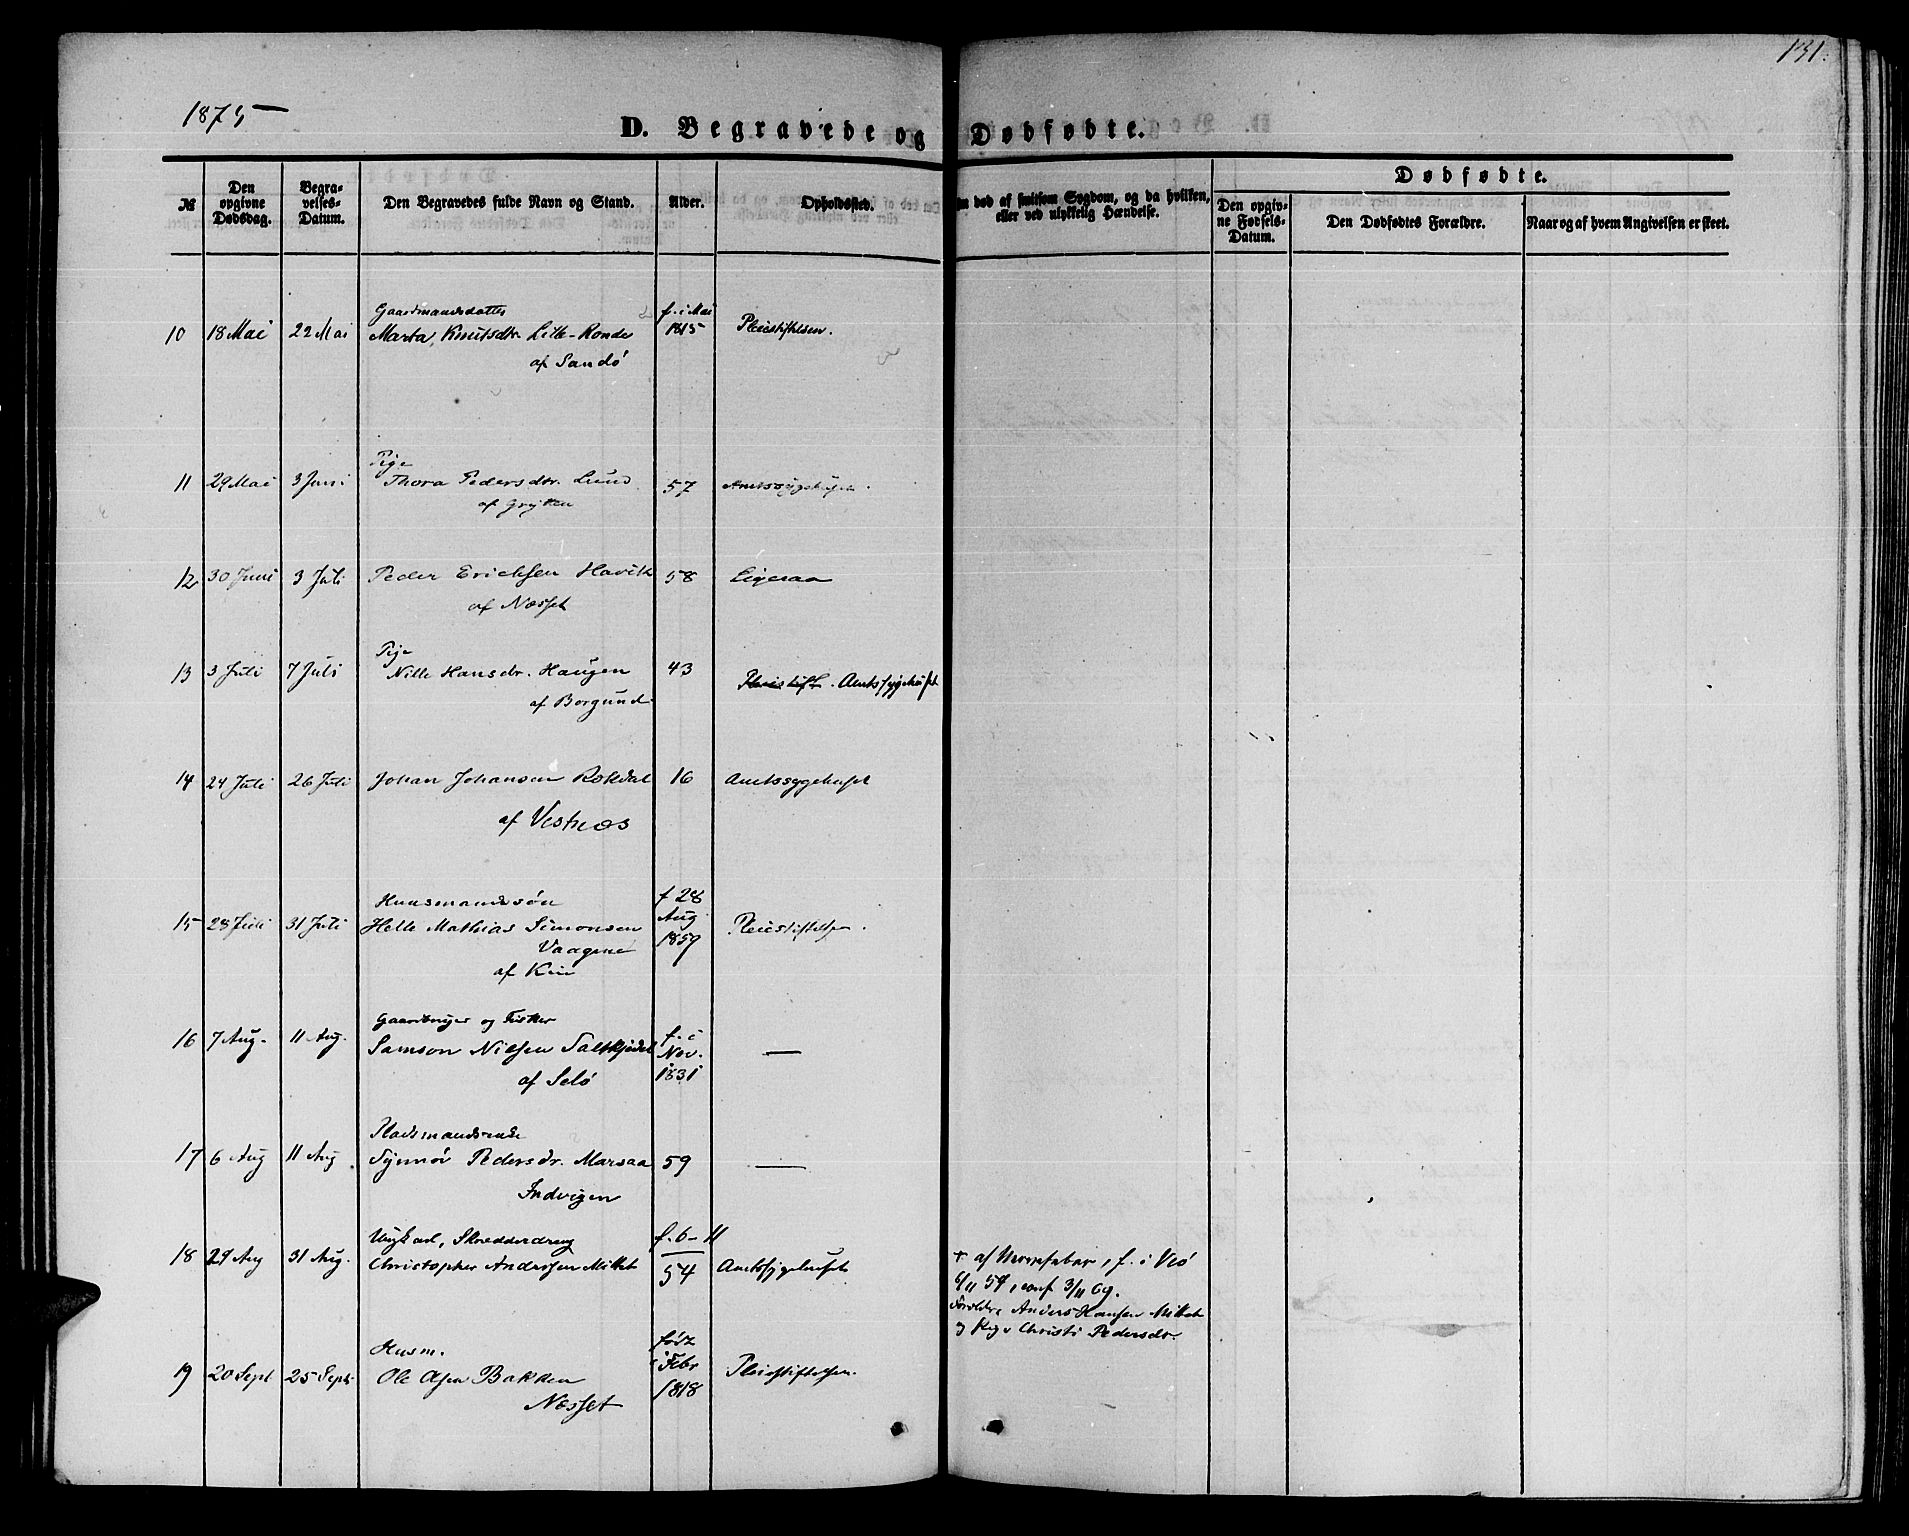 131.
1875
D. Begravede og Dødfødte.
№
Den opgivne Dødsdag.
Begravelses-Datum.
Den Begravedes fulde Navn og Stand.
Alder.
Opholdssted.
Om død af smitsom Sygdom, og da hvilken, eller ved ulykkelig Hændelse.
Dødfødte.
Den opgivne Fødsels-Datum.
Den Dødfødtes Forældre.
Naar og af hvem Angivelsen er skeet.
Gaardmandsdatter f. i Mai
10 18 Mai 22 Mai Marta Knutsdtr. Lille-Ronde 1815 Pleiestiftelsen.
af Sandø
Pige
11 29 Mai 3 Juni Thora Pedersdtr. Lund 57 Amtssygehuset.
af Grytten
12 30 Juni 3 Juli Peder Ericksen Havik 58 Eigeraa
af Næsset
Pige
13 3 Juli 7 Juli Nille Hansdr. Haugen 43 Pleiestift. Amtssygehuset
af Borgund
14 24 Juli 26 Juli Johan Johansen Rokdal 16 Amtssygehuset
af Vestnæs
Huusmandssøn f 28
15 28 Juli 31 Juli Helle Mathias Simonsen Aug. Pleiestiftelsen.
Vaagene 1859
af Kin
Gaardbruger og Fisker f. i
16 7 Aug. 11 Aug. Samson Nilsen Saltskjedel Nov. —
af Selø 1831
Pladsmandsenke
17 6 Aug 11 Aug Synnøv Pedersdr. Marsaa 59 —
Indvigen
Ungkarl, Skrædderdreng f. 6-11
18 29 Aug 31 Aug. Christopher Anderssen Mittet 54 Amtssygehuset
+ af Nervefeber, f. i Veø
6/11 54, conf 3/11 69.
Forældre Anders Hansen Mittet
og Christi Pedersdr.
Husm. født
19 20 Sept 25 Sept. Ole Olsen Bakken i Febr Pleiestiftelsen.
Næsset 1818